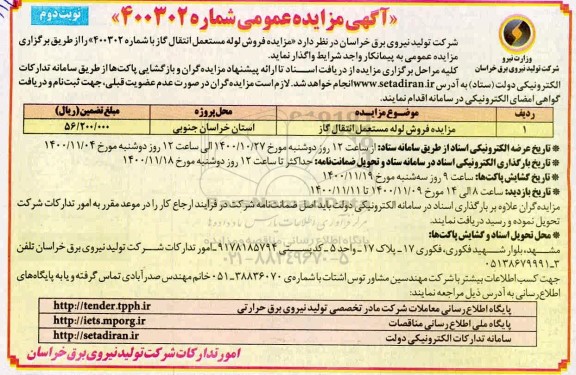 «آگهی مزایده عمومی شماره ۴۰۰۳۰۲»
نوبت دوم
وزارت نیرو
شرکت تولید نیروی برق خراسان
شرکت تولید نیروی برق خراسان در نظر دارد «مزایده فروش لوله مستعمل انتقال گاز با شماره ۴۰۰۳۰۲» را از طریق برگزاری
مزایده عمومی به پیمانکار واجد شرایط واگذار نماید.
کلیه مراحل برگزاری مزایده از دریافت اسناد تا ارائه پیشنهاد مزایده‌گران و بازگشایی پاکت‌ها از طریق سامانه تدارکات
الکترونیکی دولت (ستاد) به آدرس www.setadiran.ir انجام خواهد شد. لازم است مزایده‌گران در صورت عدم عضویت قبلی، جهت ثبت‌نام و دریافت
گواهی امضای الکترونیکی در سامانه اقدام نمایند.
ردیف موضوع مزایده محل پروژه مبلغ تضمین (ریال)
۱ مزایده فروش لوله مستعمل انتقال گاز استان خراسان جنوبی ۵۶/۲۰۰/۰۰۰
* تاریخ عرضه الکترونیکی اسناد از طریق سامانه ستاد: از ساعت ۱۲ روز دوشنبه مورخ ۱۴۰۰/۱۰/۲۷ الی ساعت ۱۲ روز دوشنبه مورخ ۱۴۰۰/۱۱/۰۴
* تاریخ بارگذاری الکترونیکی اسناد در سامانه ستاد و تحویل ضمانت‌نامه: حداکثر تا ساعت ۱۲ روز دوشنبه مورخ ۱۴۰۰/۱۱/۱۸
* تاریخ گشایش پاکت‌ها: ساعت ۹ روز سه‌شنبه مورخ ۱۴۰۰/۱۱/۱۹
* تاریخ بازدید: ساعت ۸ الی ۱۴ مورخ ۱۴۰۰/۱۱/۰۹ تا ۱۴۰۰/۱۱/۱۱
مزایده‌گران علاوه بر بارگذاری اسناد در سامانه الکترونیکی دولت باید اصل ضمانت‌نامه شرکت در فرآیند ارجاع کار را در موعد مقرر به امور تدارکات شرکت
تحویل نموده و رسید دریافت نمایند.
* محل تحویل اسناد و گشایش پاکت‌ها:
مشهد، بلوار شهید فکوری، فکوری ۱۷- پلاک ۱۷- واحد ۵ - کدپستی ۹۱۷۸۱۸۵۷۹۴- امور تدارکات شرکت تولید نیروی برق خراسان تلفن
۰۵۱۳۸۶۷۹۹۹۱-۳
جهت کسب اطلاعات بیشتر با شرکت مهندسین مشاور توس اشتات با شماره‌ی ۳۸۸۳۶۰۷۰-۰۵۱ خانم مهندس صدرآبادی تماس گرفته و یا به پایگاه‌های
اطلاع‌رسانی به آدرس ذیل مراجعه نمایند:
پایگاه اطلاع رسانی معاملات شرکت مادر تخصصی تولید نیروی برق حرارتی http://tender.tpph.ir
پایگاه ملی اطلاع رسانی مناقصات http://iets.mporg.ir
سامانه تدارکات الکترونیکی دولت http://setadiran.ir
امور تدارکات شرکت تولید نیروی برق خراسان
۰۲۱-۸۸۳۴۹۶۷۰-۵